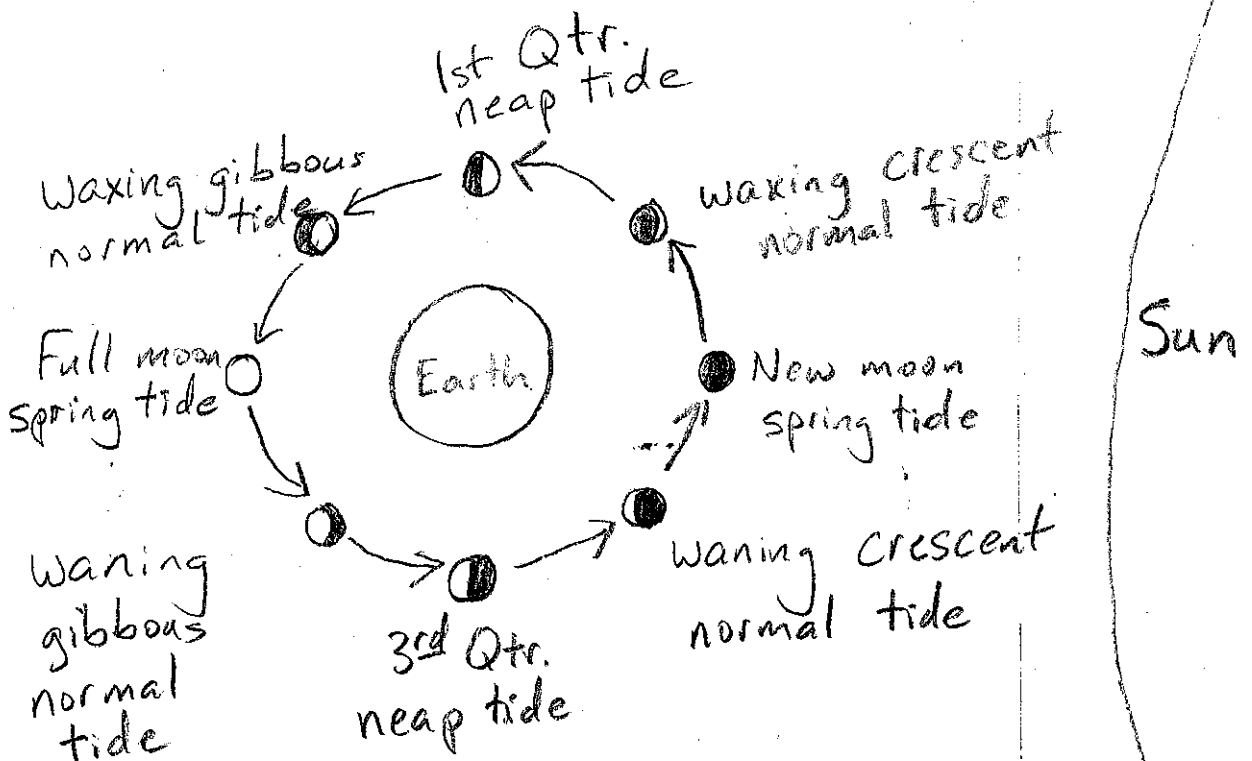 1st Qtr.
neap tide
Waxing gibbous
normal tide
waxing crescent
normal tide
Full moon
spring tide
Earth
New moon
spring tide
Sun
waning
gibbous
normal
tide
3rd Qtr.
neap tide
waning crescent
normal tide